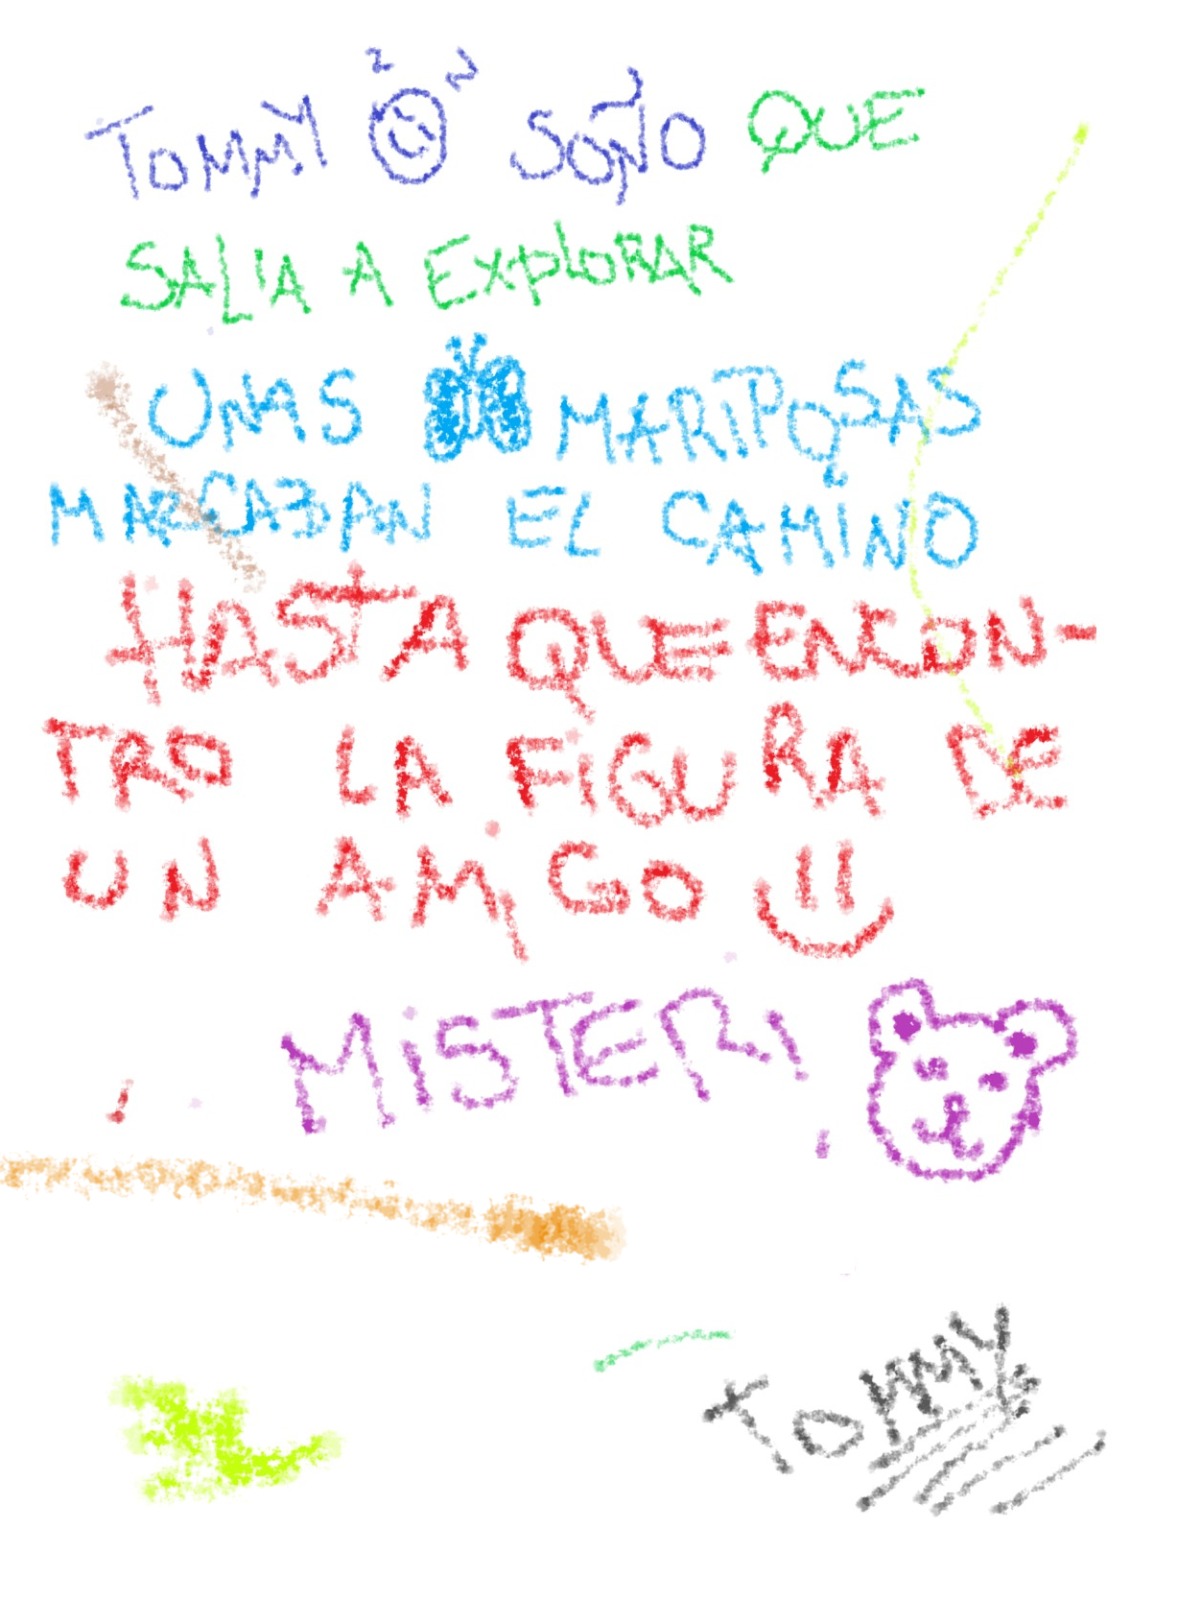 TOMMY SOÑO QUE
SALIA A EXPLORAR
UNAS MARIPOSAS
MARCABAN EL CAMINO
HASTA QUE ENCON-
TRO LA FIGURA DE
UN AMIGO
MISTERI
TOMMY